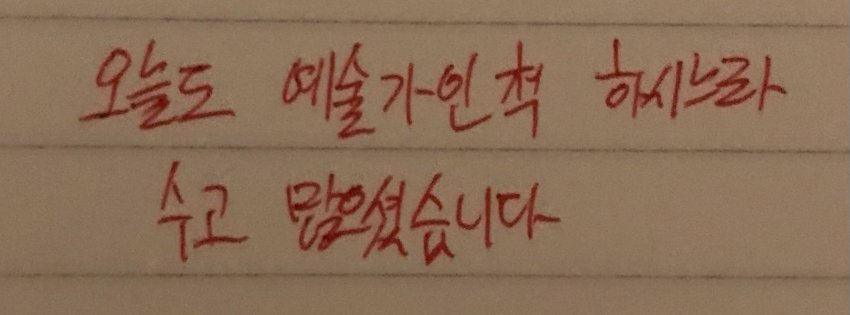 오늘도 예술가인 척 하시느라
수고 많으셨습니다